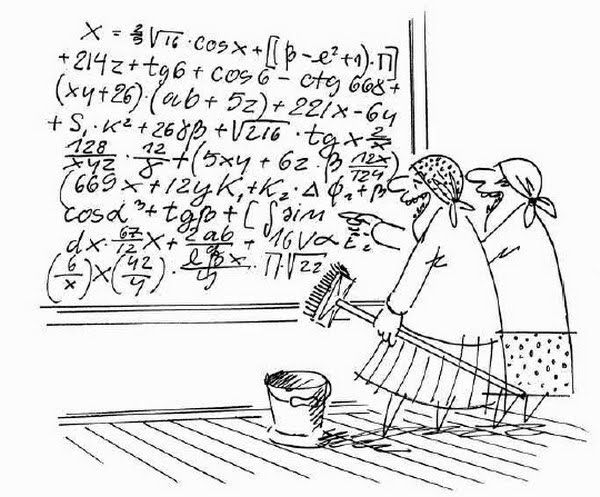 X = 2/3 √16 · cos x + [(β − ℓ² + 1) · Π]
+ 214z + tg6 + cos 6 − ctg 668 +
(xy + 26) · (ab + 5z) + 221x − 6y
+ S₁ · K² + 268β + √216 · tg x 2/x
128/xyz · 12/8 + (5xy + 6z · β 12x/124)
(669x + 12yK₁ + K₂ · Δ φ₁ + β
cos α³ + tgβ + [∫ sim
dx · 67/12 X + 2ab + 16Vα
(6/x) X (42/y) · Π √22